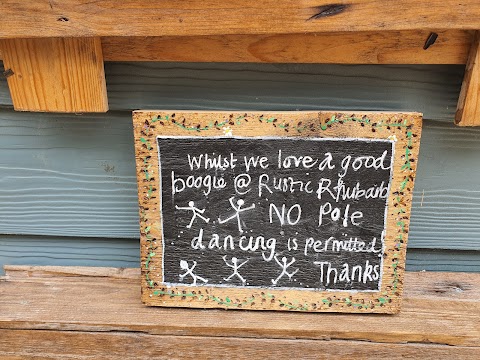 Whilst we love a good
boogie @ Rustic Rhubarb
NO Pole
dancing is permitted
Thanks